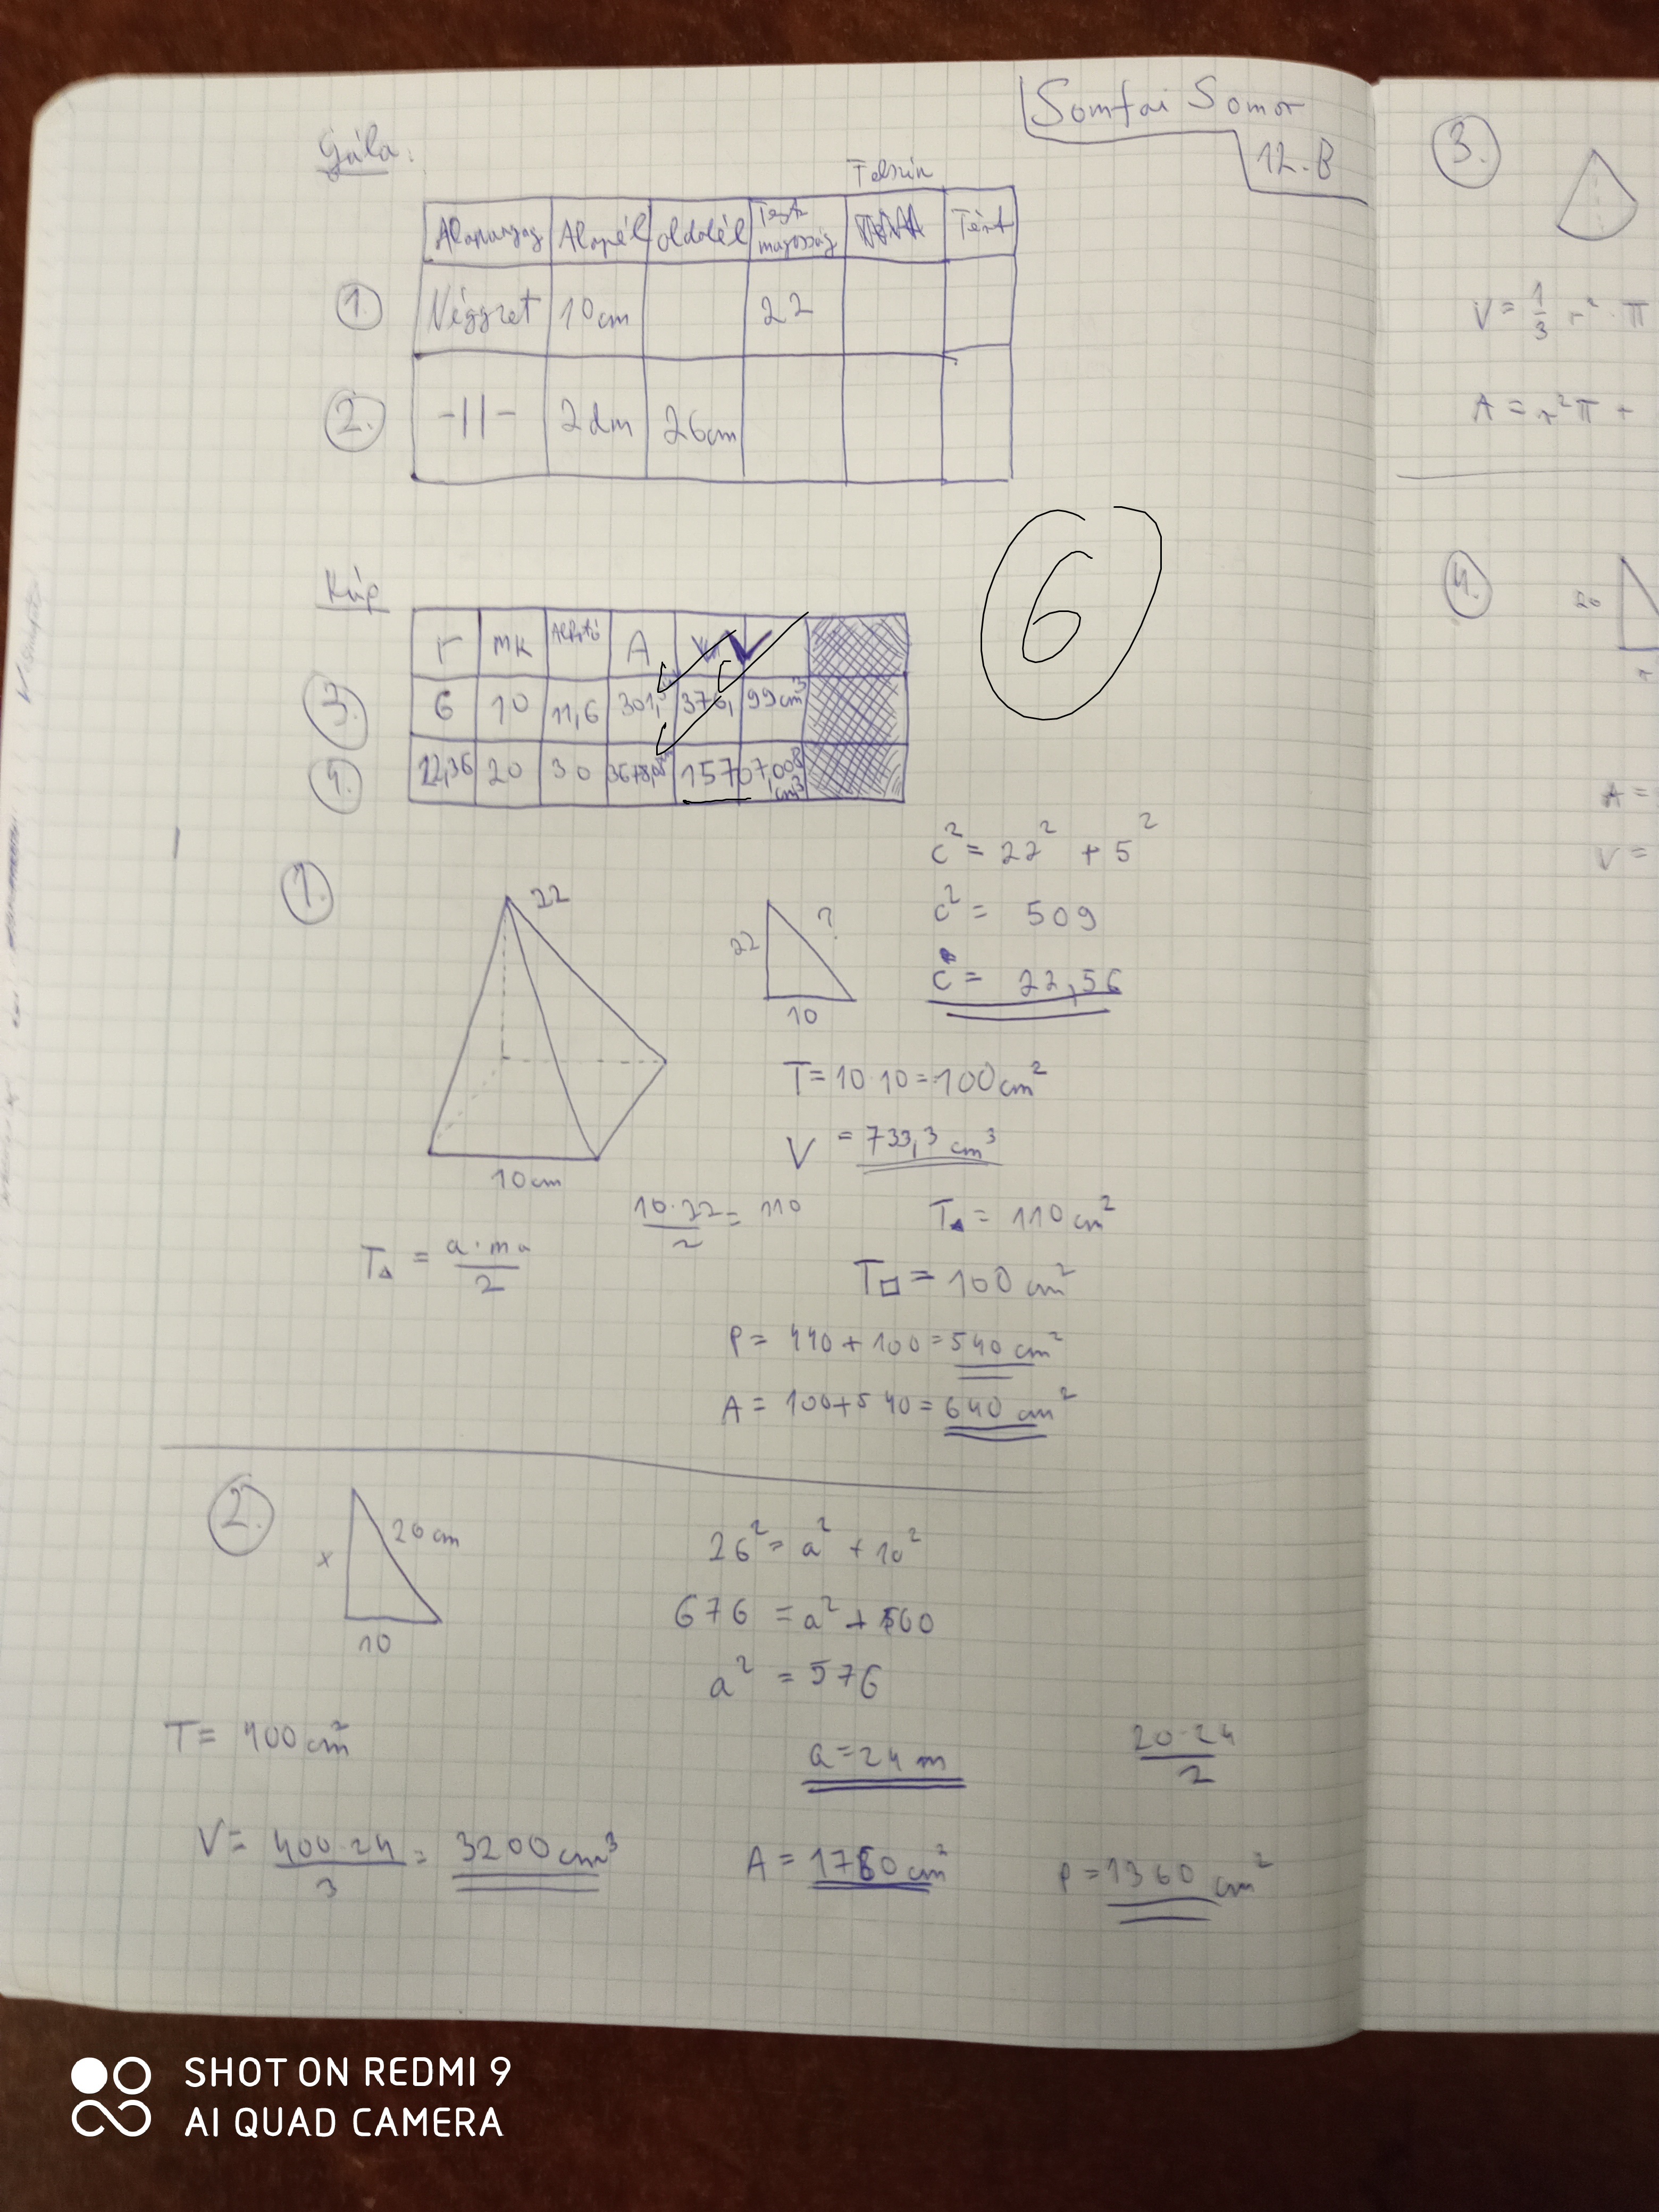 Somfai Somor
12.B
Gúla:
Felszín
Alapanyag Alapél oldalél Test magasság Térf
1. Négyzet 10cm 22
2. -||- 2dm 26cm
6
Kúp
r MK Alkotó A V
3. 6 10 11,6 301,5 376,99cm³
4. 22,36 20 30 3678,05 15707,008 cm³
1.
22
22 ?
10
10cm
c² = 22² + 5²
c² = 509
c = 22,56
T = 10·10 = 100cm²
V = 733,3 cm³
10·22/2 = 110
T△ = a·ma/2
T△ = 110 cm²
T□ = 100 cm²
P = 440 + 100 = 540 cm²
A = 100+540 = 640 cm²
2.
x 26cm
10
26² = a² + 10²
676 = a² + 100
a² = 576
a = 24 m
T = 400cm²
20·24/2
V = 400·24/3 = 3200cm³
A = 1760cm²
P = 1360 cm²
3.
V = 1/3 r² · π
A = r²π +
4.
20
r
A =
V =
SHOT ON REDMI 9
AI QUAD CAMERA